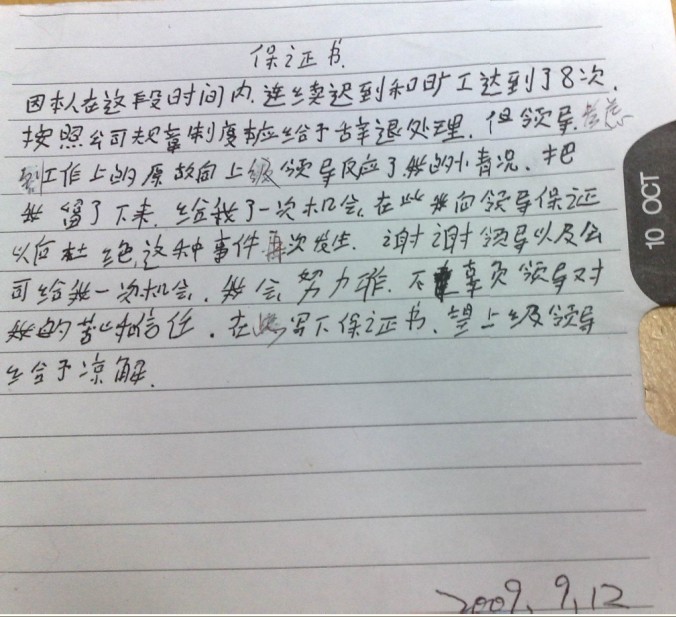 保证书
因本人在这段时间内.连续迟到和旷工达到了8次.
按照公司规章制度本应给于辞退处理.但领导.考虑
到工作上的原故向上级领导反应了.我的小情况.把
我留了下来.给我了一次机会.在此我向领导保证
以后杜绝这种事件再次发生.谢谢领导以及公
司给我一次机会.我会努力工作.不辜负领导对
我的苦心和信任.在此写下保证书.望上级领导
给予凉解.
2009.9.12
10 OCT